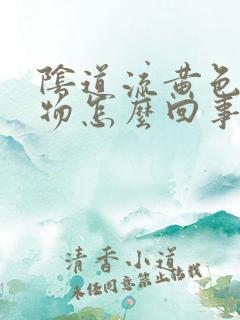 陰道流黄色
物怎麼回事
清香小道
未经同意禁止转载